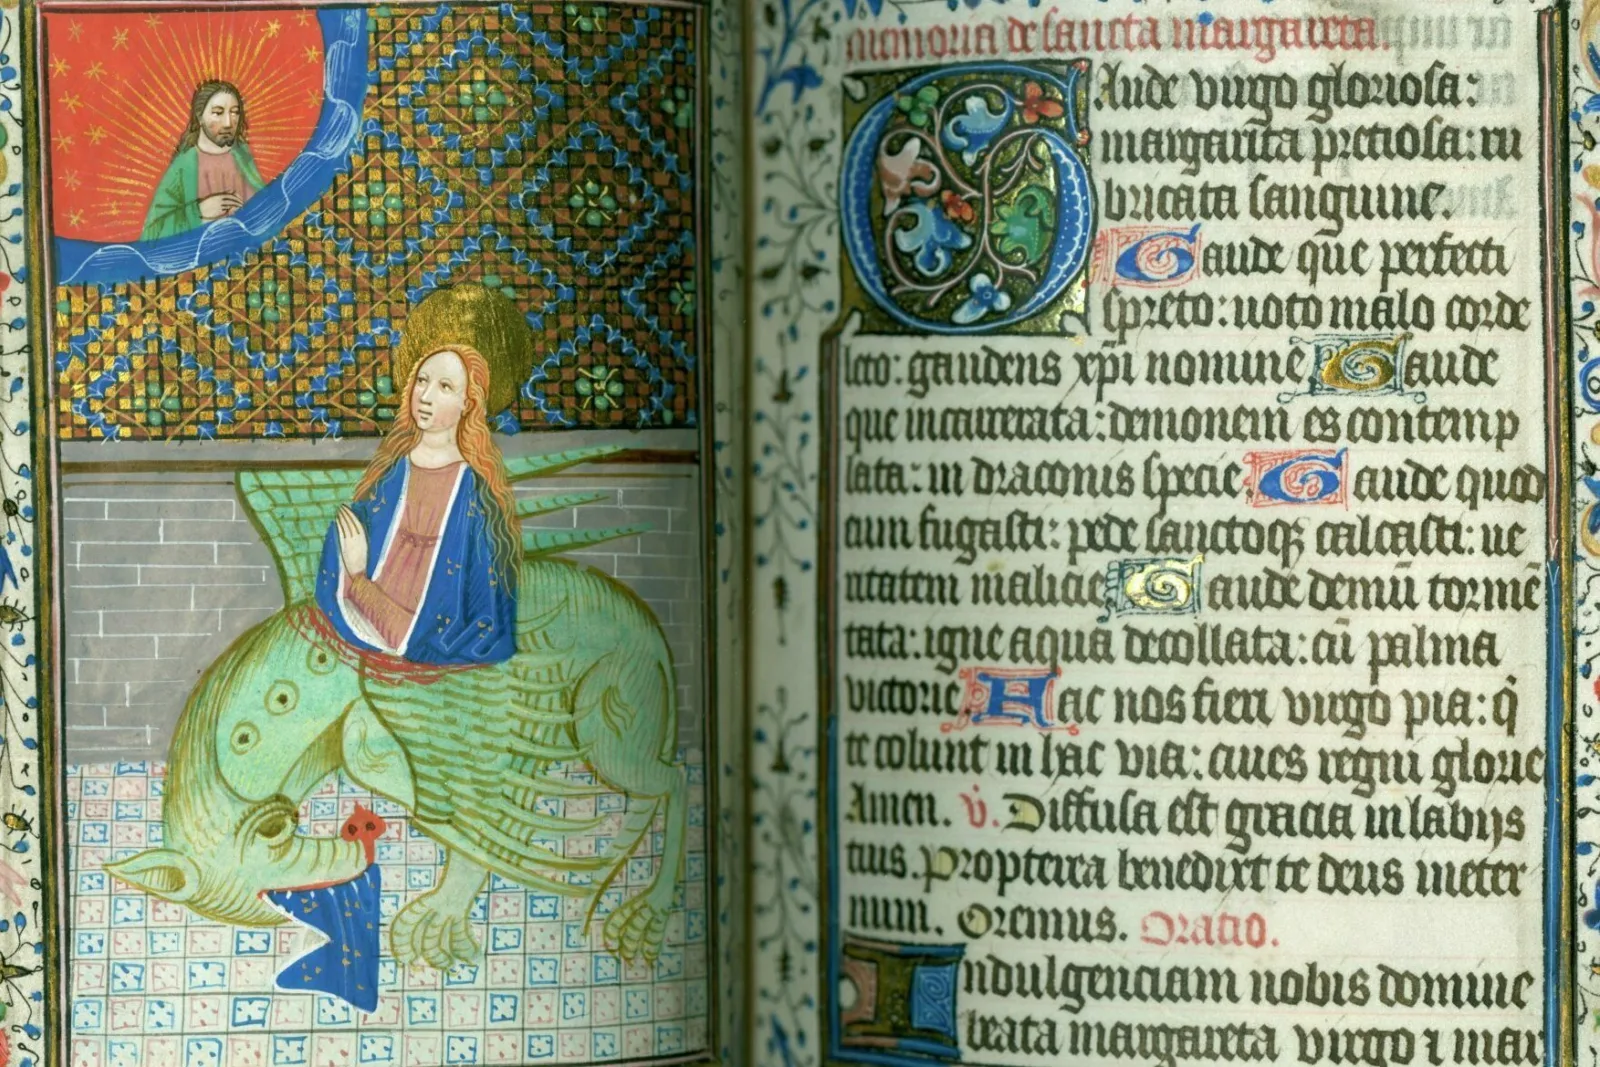 memoria de sancta margareta.
Gaude virgo gloriosa:
margarita preciosa: ru
bricata sanguine.
Gaude que perfecti
spreto: uoto malo corde
leto: gaudens xp̄i nomine Gaude
que incarcerata: demonem es contemp
lata: in draconis specie. Gaude quod
eum fugasti: pede sanctoqꝫ calcasti: ue
ntatem malicie Gaude demū tormē
tata: igne aqua decollata: cū palma
victorie Hac nos fieri virgo pia: q̄
te colunt in hac via: ciues regni glorie
Amen. v̇. Diffusa est gracia in labijs
tuis. Propterea benedixit te deus ineter
num. Oremus. Oratio.
Indulgenciam nobis domine
beata margareta virgo ⁊ mar